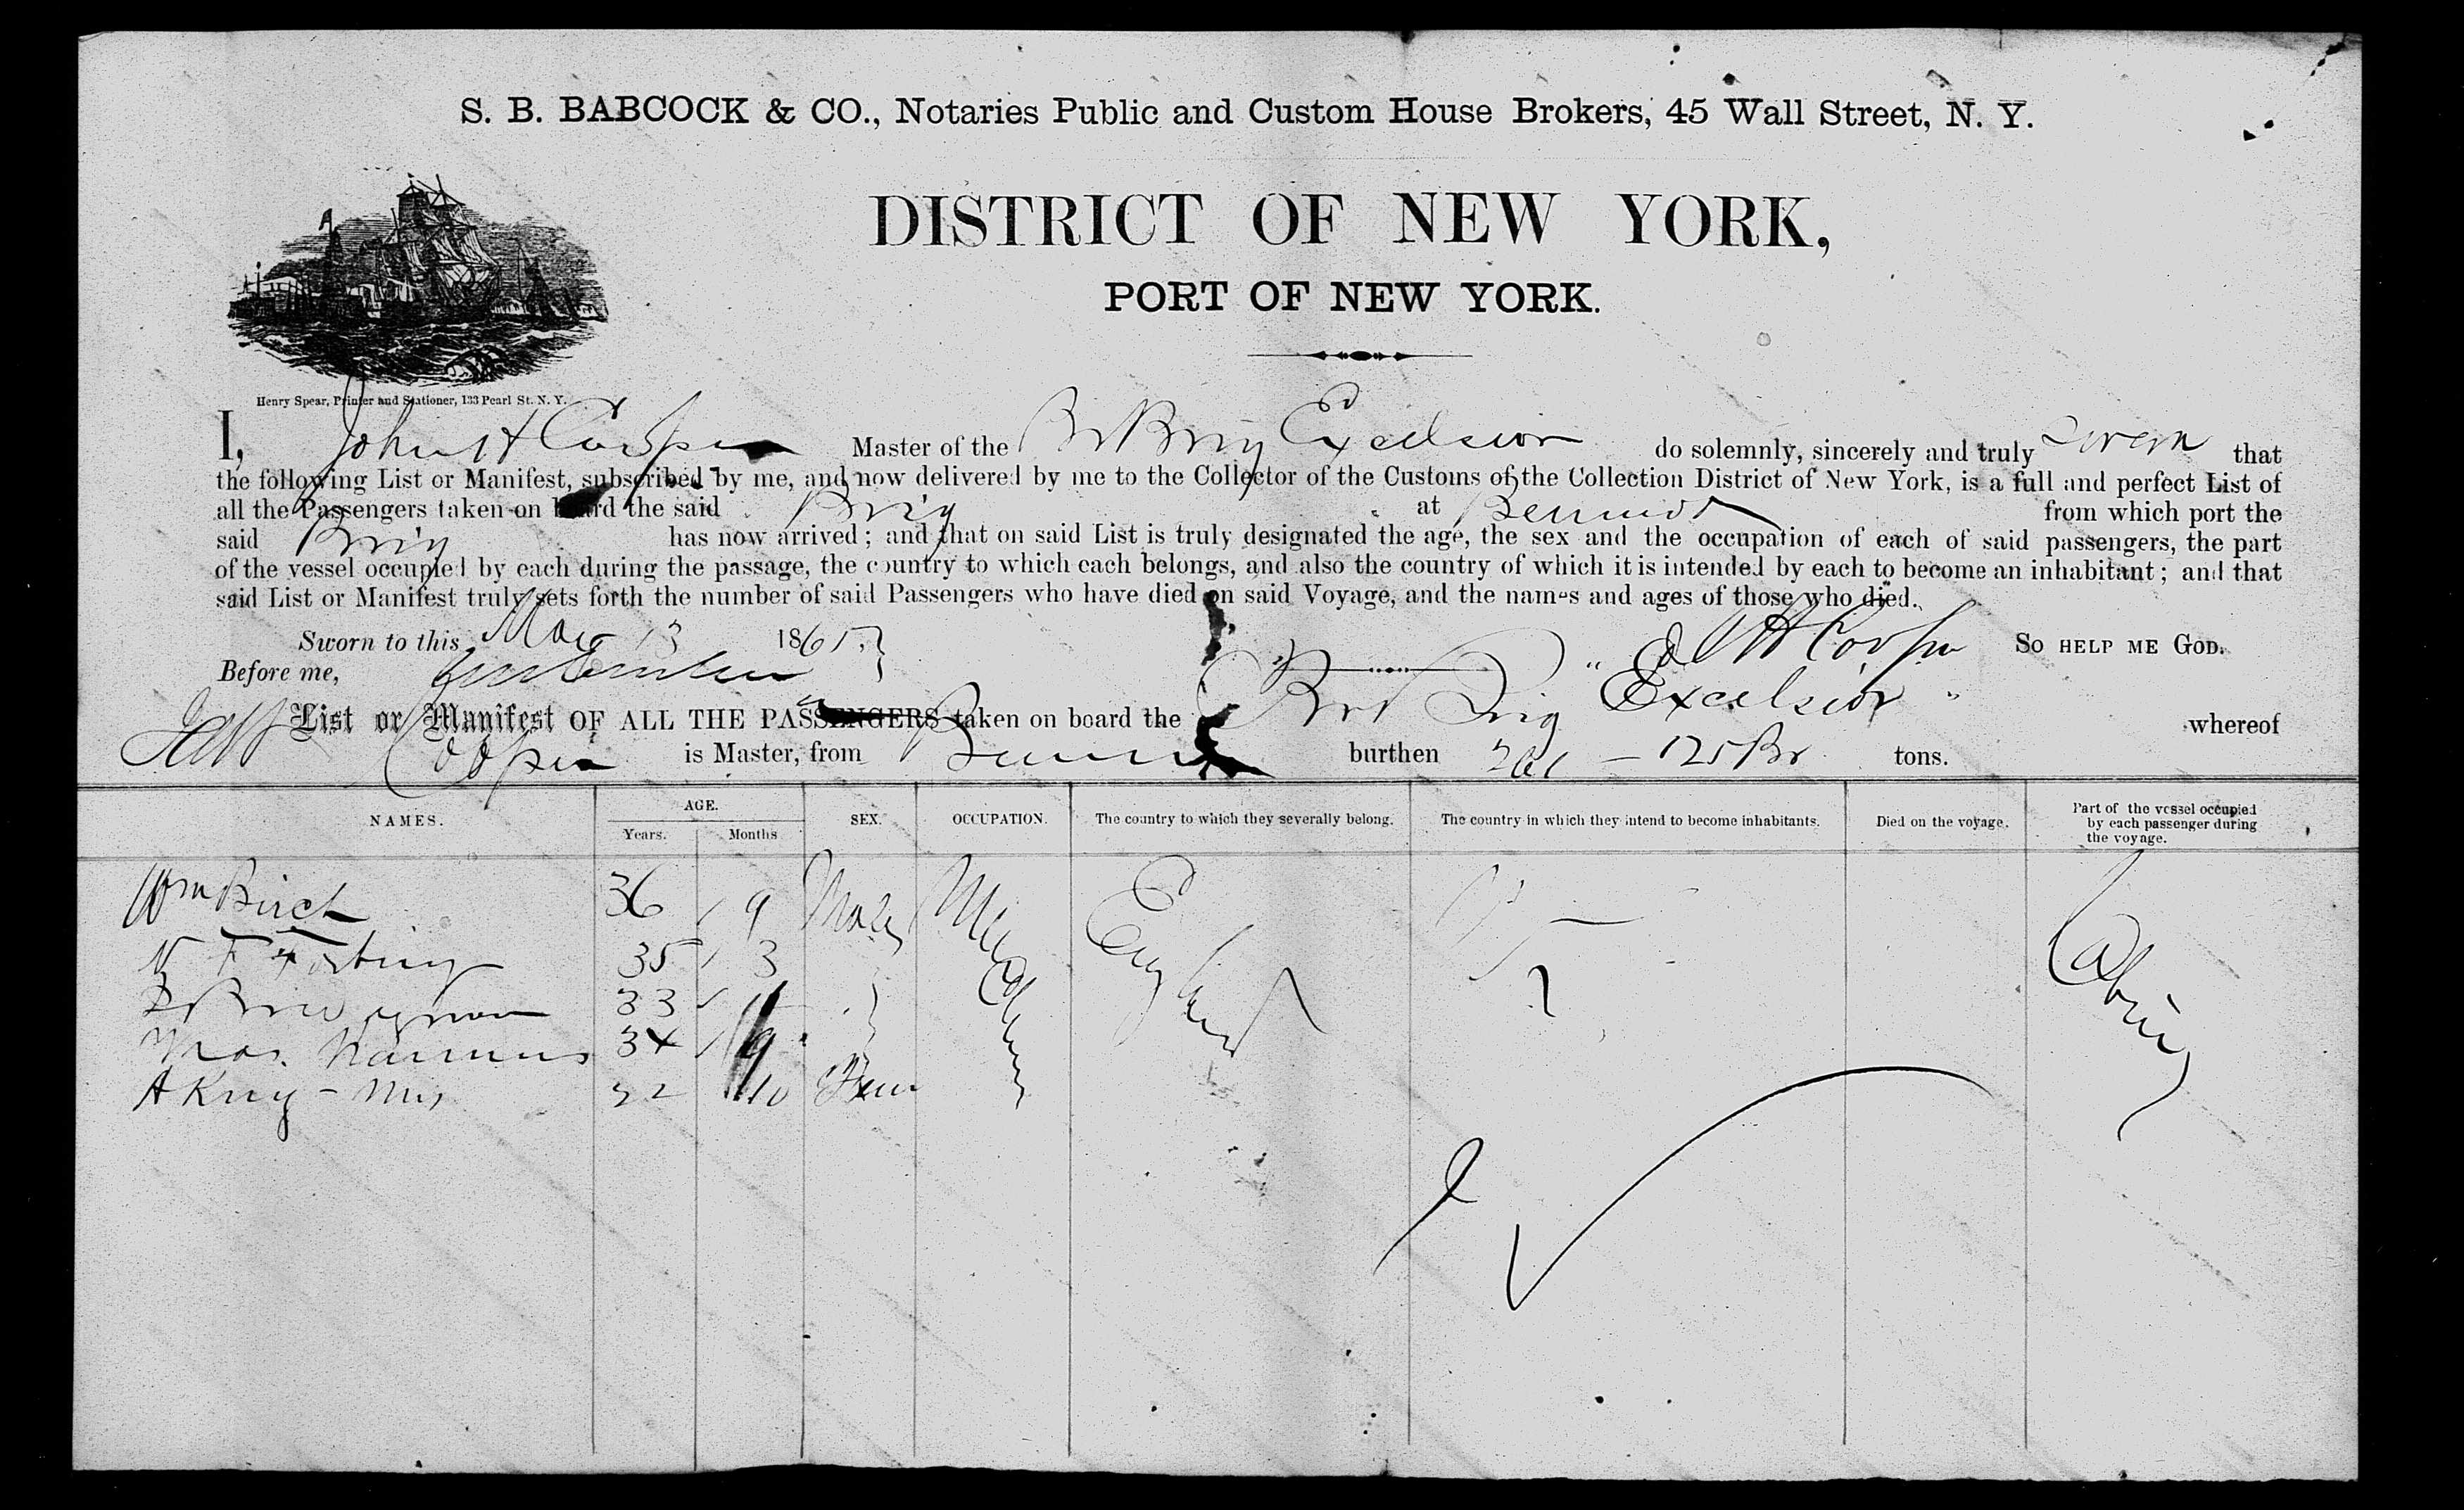 S. B. BABCOCK & CO., Notaries Public and Custom House Brokers, 45 Wall Street, N. Y.
DISTRICT OF NEW YORK,
PORT OF NEW YORK.
Henry Spear, Printer and Stationer, 133 Pearl St. N. Y.
I, John H Cooper Master of the Br Brig Excelsior do solemnly, sincerely and truly swear that
the following List or Manifest, subscribed by me, and now delivered by me to the Collector of the Customs of the Collection District of New York, is a full and perfect List of
all the Passengers taken on board the said Brig at Bermuda from which port the
said Brig has now arrived; and that on said List is truly designated the age, the sex and the occupation of each of said passengers, the part
of the vessel occupied by each during the passage, the country to which each belongs, and also the country of which it is intended by each to become an inhabitant; and that
said List or Manifest truly sets forth the number of said Passengers who have died on said Voyage, and the names and ages of those who died.
Sworn to this 13 1865. J H Cooper SO HELP ME GOD.
Before me,
List or Manifest OF ALL THE PASSENGERS taken on board the Brig "Excelsior" whereof
Cooper is Master, from Bermuda burthen 261 - 125 Br tons.
NAMES. AGE. SEX. OCCUPATION. The country to which they severally belong. The country in which they intend to become inhabitants. Died on the voyage. Part of the vessel occupied by each passenger during the voyage.
Years. Months
Wm Birch 36 9 Male England Cabin
35 3
33
34 9
A King - 22 10 Fem